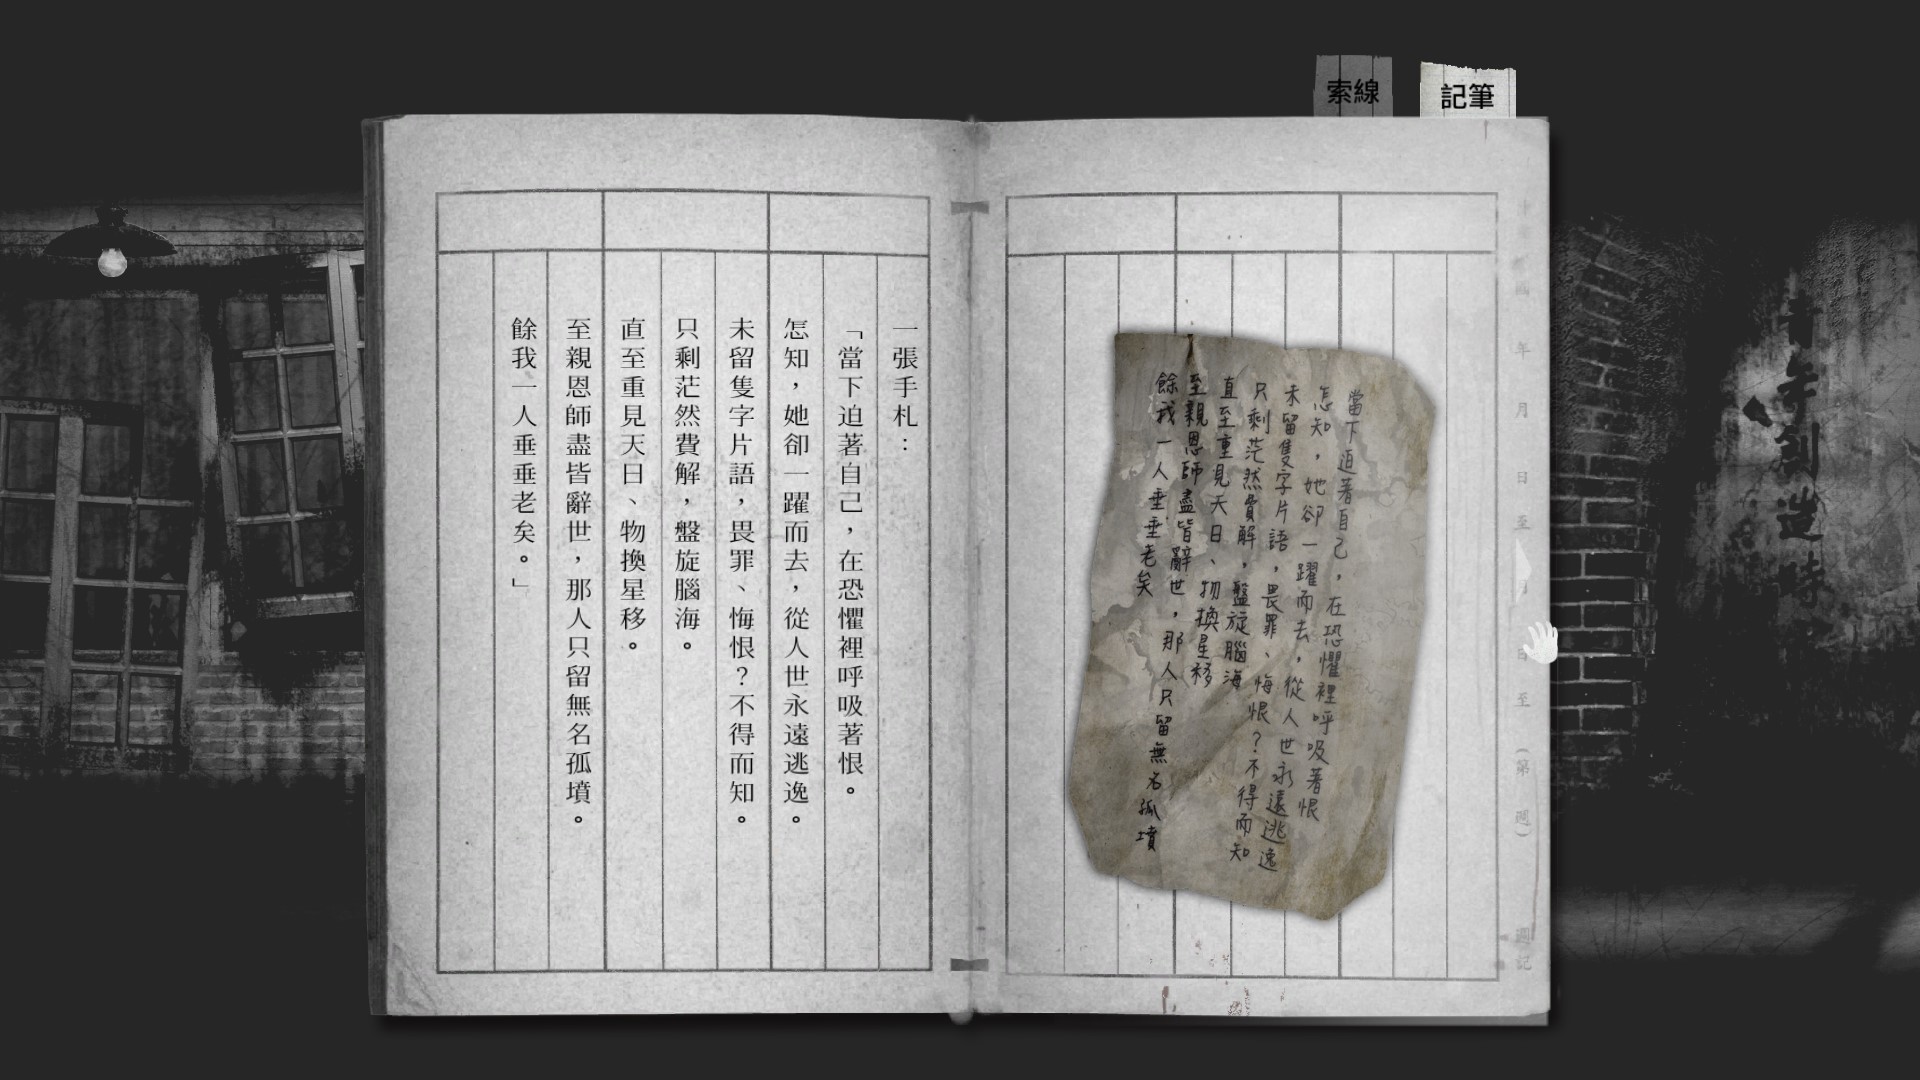 線索
筆記
一張手札：
「當下迫著自己，在恐懼裡呼吸著恨。
怎知，她卻一躍而去，從人世永遠逃逸。
未留隻字片語，畏罪、悔恨？不得而知。
只剩茫然費解，盤旋腦海。
直至重見天日、物換星移。
至親恩師盡皆辭世，那人只留無名孤墳。
餘我一人垂垂老矣。」
當下迫著自己，在恐懼裡呼吸著恨
怎知，她卻一躍而去，從人世永遠逃逸
未留隻字片語，畏罪、悔恨？不得而知
只剩茫然費解，盤旋腦海
直至重見天日、物換星移
至親恩師盡皆辭世，那人只留無名孤墳
餘我一人垂垂老矣
年 月 日至 月 日至 (第 週)
週記
青年創造時